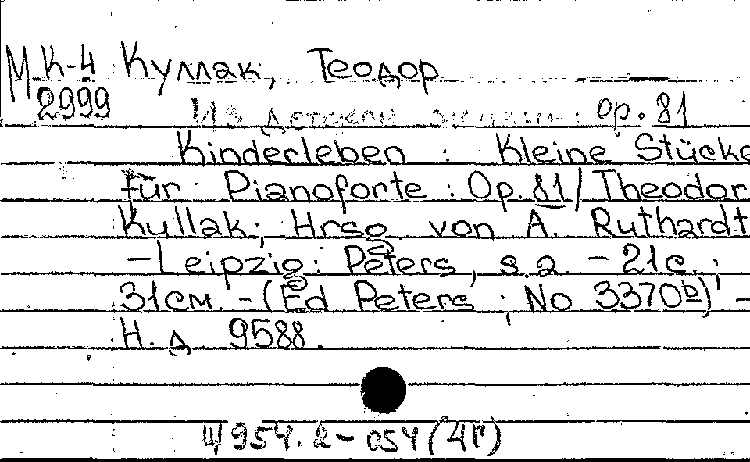 М К-4 Куллак, Теодор
2999 Из детской жизни: ор. 81
Kinderleben : Kleine Stücke
für Pianoforte : Op. 81 / Theodor
Kullak; Hrsg. von A. Ruthardt
- Leipzig: Peters, s.a. - 21с. ;
31см. - (Ed Peters ; No 3370b) -
Н. д. 9588.
Ш 954.2-054 (4Г)